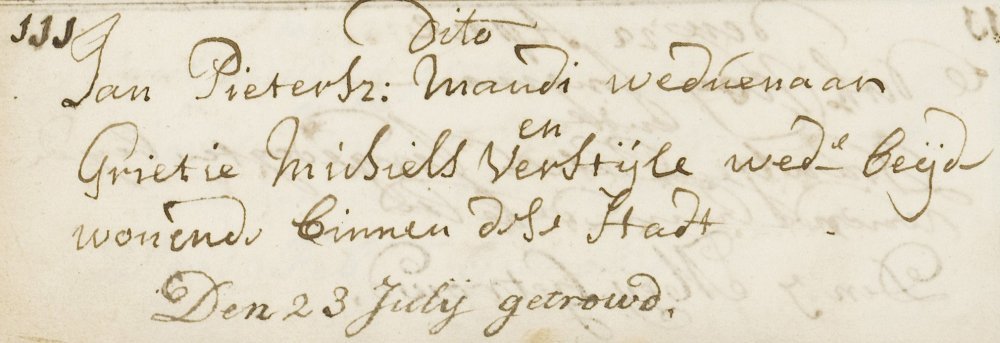 111 Dito
Jan Pietersz: Maudi weduenaar
en
Grietie Michiels Verstijle wed.e beijde
wonende binnen dese Stadt
Den 23 Julij getrowd.